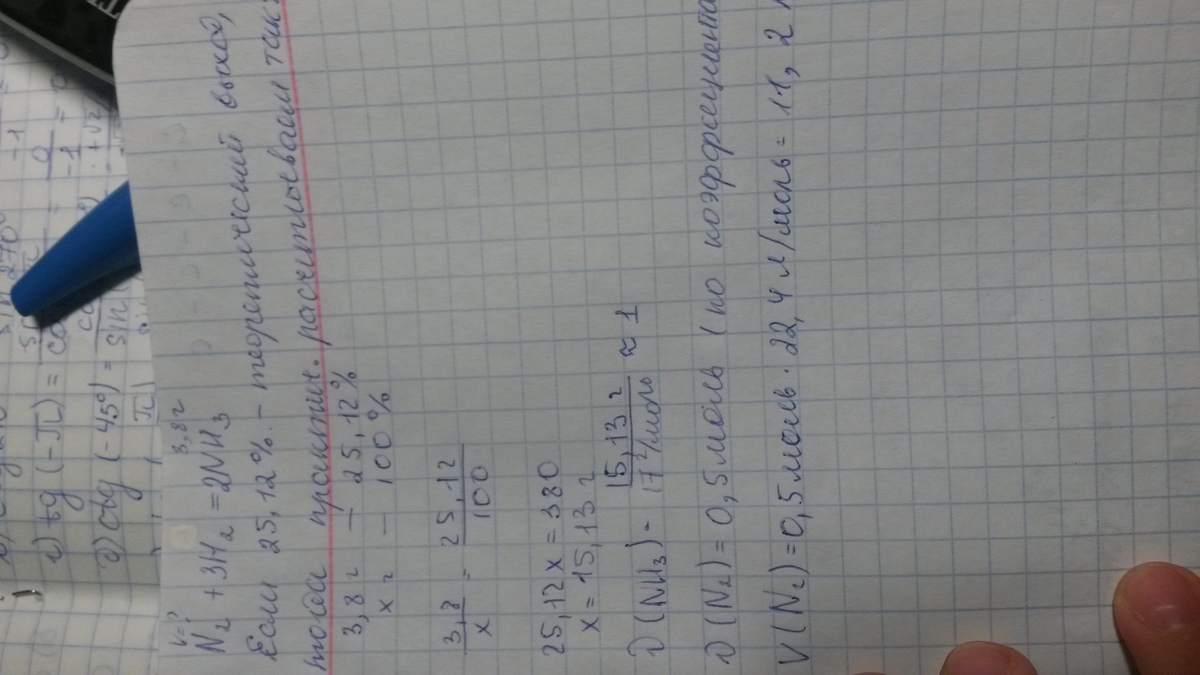 г) tg (-π) =
0
-1
= 0
д) ctg (-45°) =
V=?
3,8 г
N₂ + 3H₂ = 2NH₃
Если 25,12%. - теоретический выход,
тогда практич. расчитываем так:
3,8 г — 25,12%
x г — 100%
3,8/x = 25,12/100
25,12x = 380
x = 15,13 г
ν (NH₃) = 15,13 г / 17 г/моль ≈ 1
ν (N₂) = 0,5 моль (по коэффициента
V (N₂) = 0,5 моль · 22,4 л/моль = 11,2